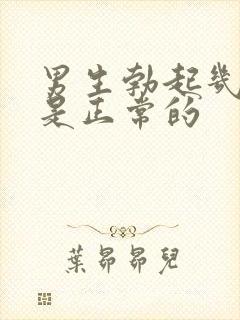 男生勃起幾
是正常的
葉昴昴兒